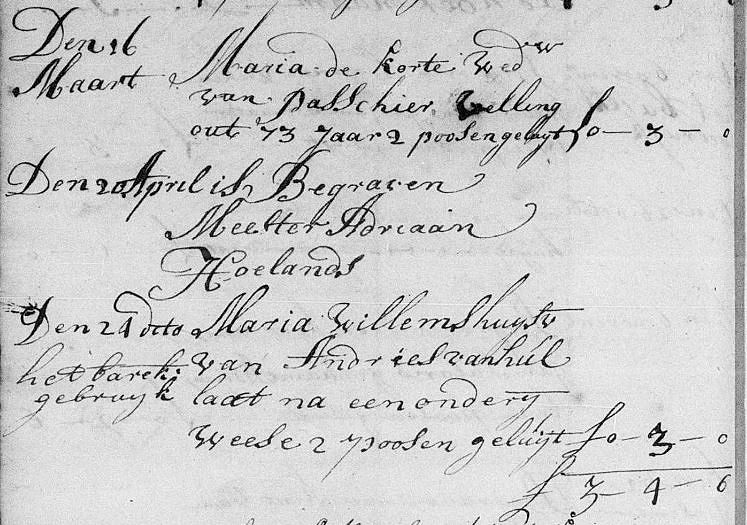 Den 16
Maart Maria de korte Wedw
van Passchier Welling
out 73 Jaar 2 poosen geluyt f 0 - 3 - 0
Den 20 April is Begraven
Meester Adriaan
Hoelands
Den 24 dito Maria Willems huysv
het barek van Andries van hul
gebruyk laat na een onderj
Weese 2 poosen geluyt f 0 - 3 - 0
f 3 - 4 - 6